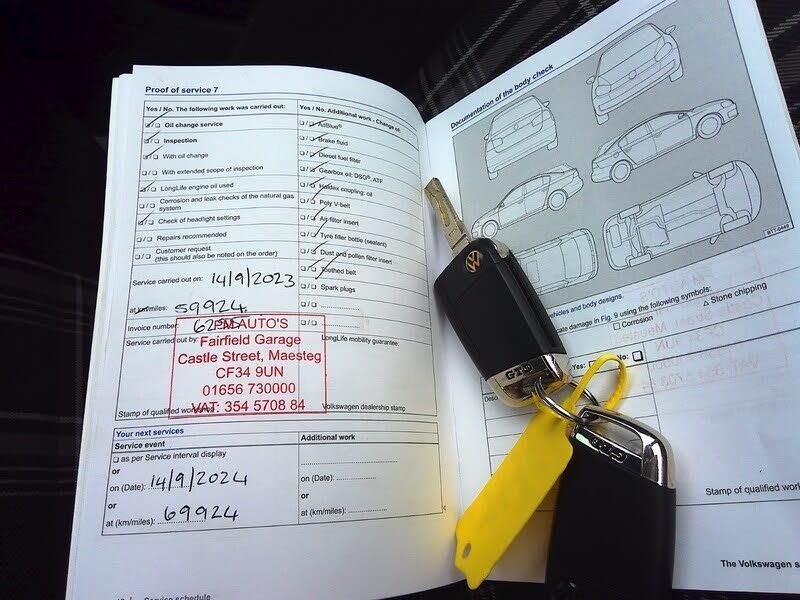 Proof of service 7
Yes / No. The following work was carried out:
Oil change service
Inspection
With oil change
With extended scope of inspection
LongLife engine oil used
Corrosion and leak checks of the natural gas
system
Check of headlight settings
Repairs recommended
Customer request
(this should also be noted on the order)
Service carried out on: 14/9/2023
at km/miles: 59924
Invoice number:
Service carried out by:
Stamp of qualified
Yes / No. Additional work - Change of:
AdBlue®
Brake fluid
Diesel fuel filter
Gearbox oil: DSG®, ATF
Haldex coupling: oil
Poly V-belt
Air filter insert
Tyre filler bottle (sealant)
Dust and pollen filter insert
Toothed belt
Spark plugs
LongLife mobility guarantee:
Volkswagen dealership stamp
PM AUTO'S
Fairfield Garage
Castle Street, Maesteg
CF34 9UN
01656 730000
VAT: 354 5708 84
Your next services
Service event
as per Service interval display
or
on (Date): 14/9/2024
or
at (km/miles): 69924
Additional work
or
on (Date):
or
at (km/miles):
Service schedule
Documentation of the body check
vehicles and body designs.
damage in Fig. 9 using the following symbols:
Corrosion
Stone chipping
Yes:
No:
Stamp of qualified
The Volkswagen
GTD